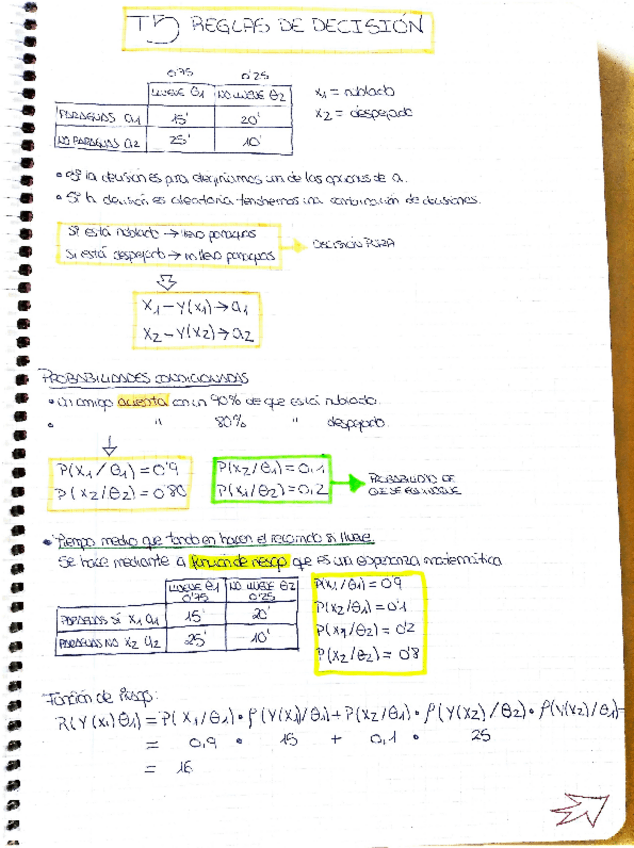 T5 REGLAS DE DECISIÓN
0'75 0'25
LLUEVE θ1 NO LLUEVE θ2
PARAGUAS a1 15' 20'
NO PARAGUAS a2 25' 10'
x1 = nublado
x2 = despejado
• Si la decisión es pura elegiríamos una de las opciones de a.
• Si la decisión es aleatoria tendremos una combinación de decisiones.
Si está nublado → llevo paraguas
Si está despejado → no llevo paraguas
DECISIÓN PURA
X1 – Y(X1) → a1
X2 – Y(X2) → a2
PROBABILIDADES CONDICIONADAS
• Un amigo acierta con un 90% de que está nublado.
• " 80% " despejado.
P(X1/θ1) = 0'9
P(X2/θ2) = 0'80
P(X2/θ1) = 0,1
P(X1/θ2) = 0,2
PROBABILIDAD DE
QUE SE EQUIVOQUE
• Tiempo medio que tardo en hacer el recorrido si llueve
Se hace mediante a función de riesgo que es una esperanza matemática
LLUEVE θ1 NO LLUEVE θ2
0'75 0'25
PARAGUAS SÍ X1 a1 15' 20'
PARAGUAS NO X2 a2 25' 10'
P(X1/θ1) = 0'9
P(X2/θ1) = 0'1
P(X1/θ2) = 0'2
P(X2/θ2) = 0'8
Función de Riesgo:
R(Y(X1)θ1) = P(X1/θ1) • ρ(Y(X1)/θ1) + P(X2/θ1) • ρ(Y(X2)/θ2) • ρ(Y(X2)/θ1) –
= 0,9 • 15 + 0,1 • 25
= 16